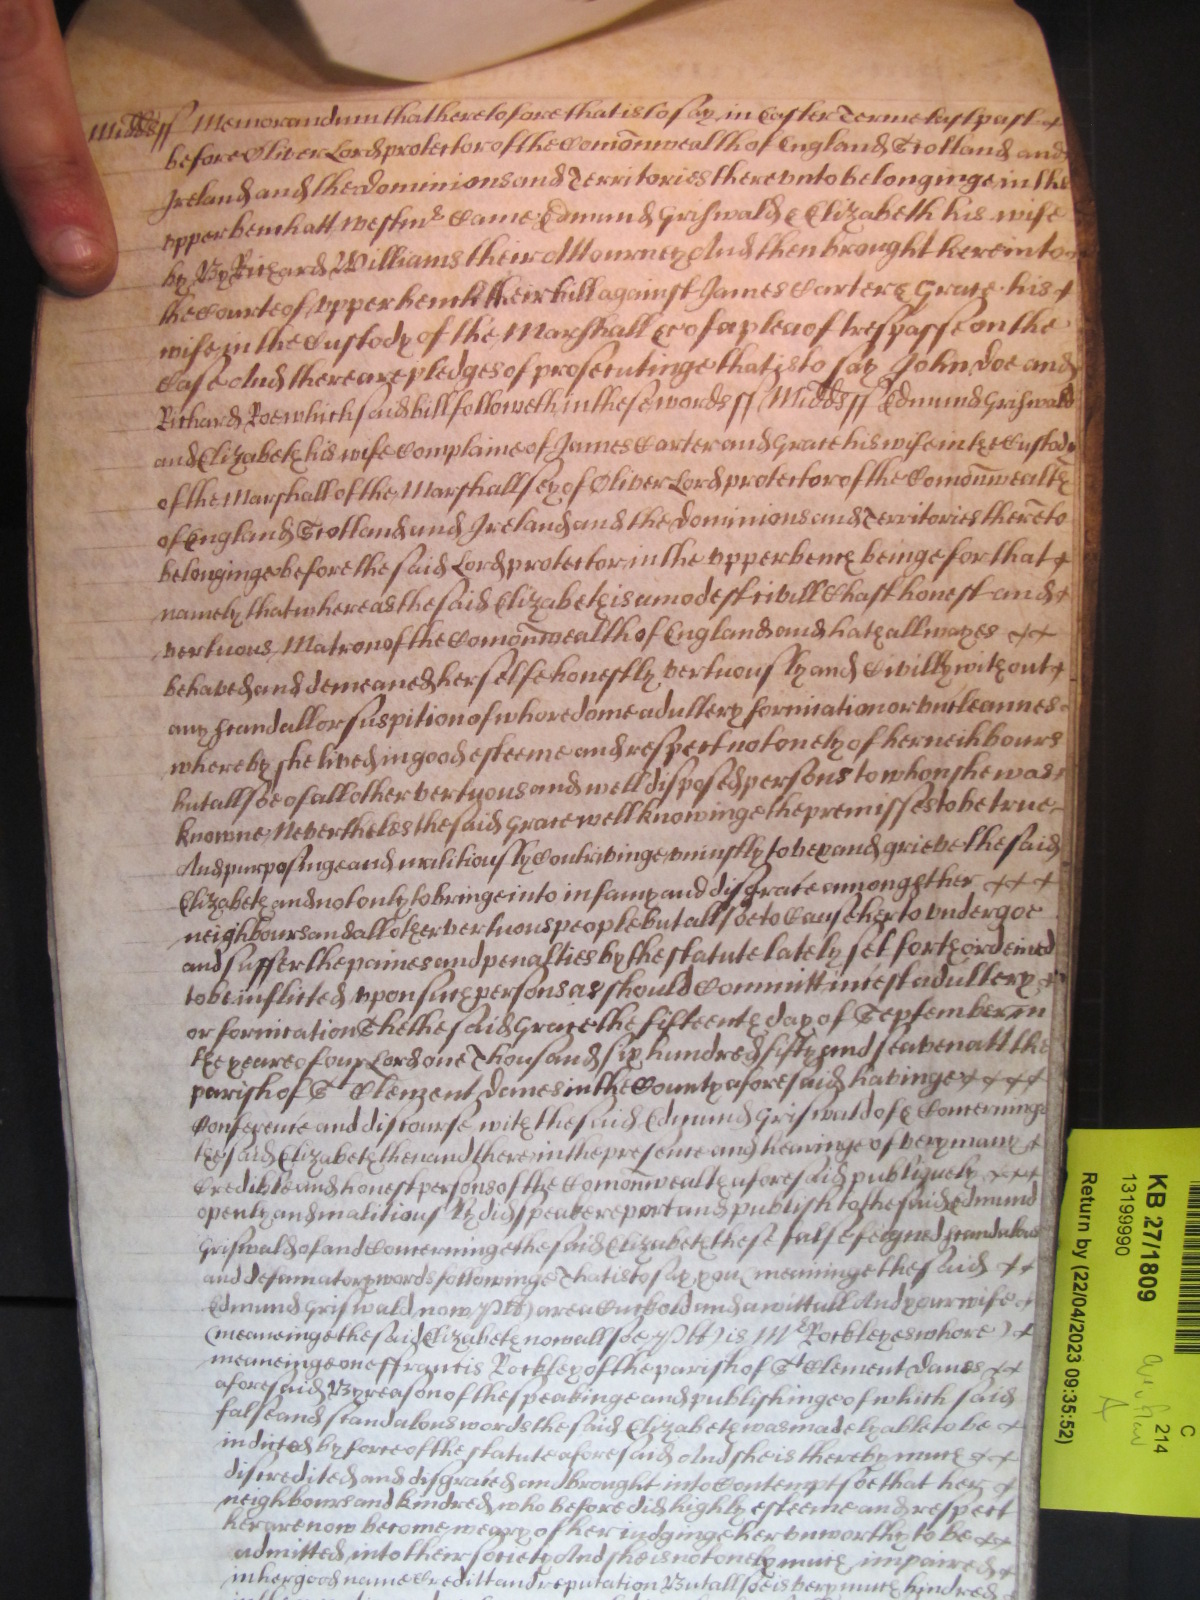 Midds ss Memorandum that heretofore that is to say in Easter Terme last past
before Oliver Lord protector of the Comonwealth of England Scotland and
Ireland and the dominions and Territories thereunto belonginge in the
upper bench att Westmr Came Edmund Griswald & Elizabeth his wife
by Richard Williams their Attourney And then brought here into
the Courte of upper bench their bill against James Carter & Grace his
wife in the Custody of the Marshall &c of a plea of trespasse on the
Case And there are pledges of prosecutinge that is to say John Doe and
Richard Roe which said bill followeth in these words ss Midds ss Edmund Griswald
and Elizabeth his wife Complaine of James Carter and Grace his wife in the Custody
of the Marshall of the Marshallsey of Oliver Lord protector of the Comonwealth
of England Scotland and Ireland and the dominions and Territories thereto
belonginge before the said Lord protector in the upper bench beinge for that
namely that whereas the said Elizabeth is a modest civill Chast honest and
vertuous Matron of the Comonwealth of England and hath allwayes
behaved and demeaned herselfe honestly vertuously and Civilly without
any scandall or suspition of whoredome adultery fornication or uncleannes
whereby she lived in good esteeme and respect not onely of her neihbours
but allsoe of all other vertuous and well disposed persons to whom she was
knowne Neverthelss the said Grace well knowinge the premisses to be true
And purposinge and malitiously Contrivinge uniustly to vex and grieve the said
Elizabeth and not only to bringe into infamy and disgrace amongst her
neighbours and all other vertuous people but allsoe to Cause her to undergoe
and suffer the paines and penalties by the statute lately set forth ordeined
to be inflicted upon such persons as should Committ incest adultery
or fornication She the said Grace the fifteenth day of September in
the yeare of our Lord one Thousand six hundred fifty and seaven att the
parish of St Clement Danes in the County aforesaid havinge
Conference and discourse with the said Edmund Griswald of & Concerninge
the said Elizabeth then and there in the presence and hearinge of very many
Credible and honest persons of the Comonwealth aforesaid publiquely
openly and malitiously did speake report and publish to the said Edmund
Griswald of and Concerninge the said Elizabeth these false feigned scandalous
and defamatory words followinge That is to say you (meaninge the said
Edmund Griswald now plt) are a Cuckold and a wittall And your wife
(meaneinge the said Elizabeth now allsoe plt) is Mr Rockleyes whore)
meaneinge one ffrancis Rockley of the parish of St Clement Danes
aforesaid By reason of the speakinge and publishinge of which said
false and scandalous words the said Elizabeth was made lyable to be
indicted by force of the statute aforesaid And she is thereby much
discredited and disgraced and brought into Contempt soe that her
neighbours and kindred who before did highly esteeme and respect
her are now become weary of her iudginge her unworthy to be
admitted into their society And she is not onely much impaired
in her good name Creditt and reputation But allsoe is very much hindred
KB 27/1809
13199990
Return by (22/04/2023 09:35:52)
C
214
A